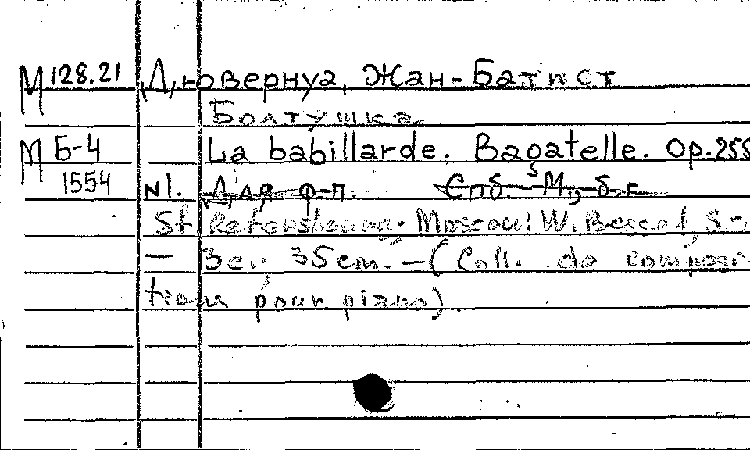 М 128.21 Дювернуа, Жан-Батист
Болтушка
М Б-4 La babillarde. Bagatelle. Op. 255
1554 N1. Для ф-п. Спб. М., б.г.
St. Petersbourg. Moscou: W. Bessel, S
— 3 с.; 35 cm. — (Coll. de composi-
tions pour piano).